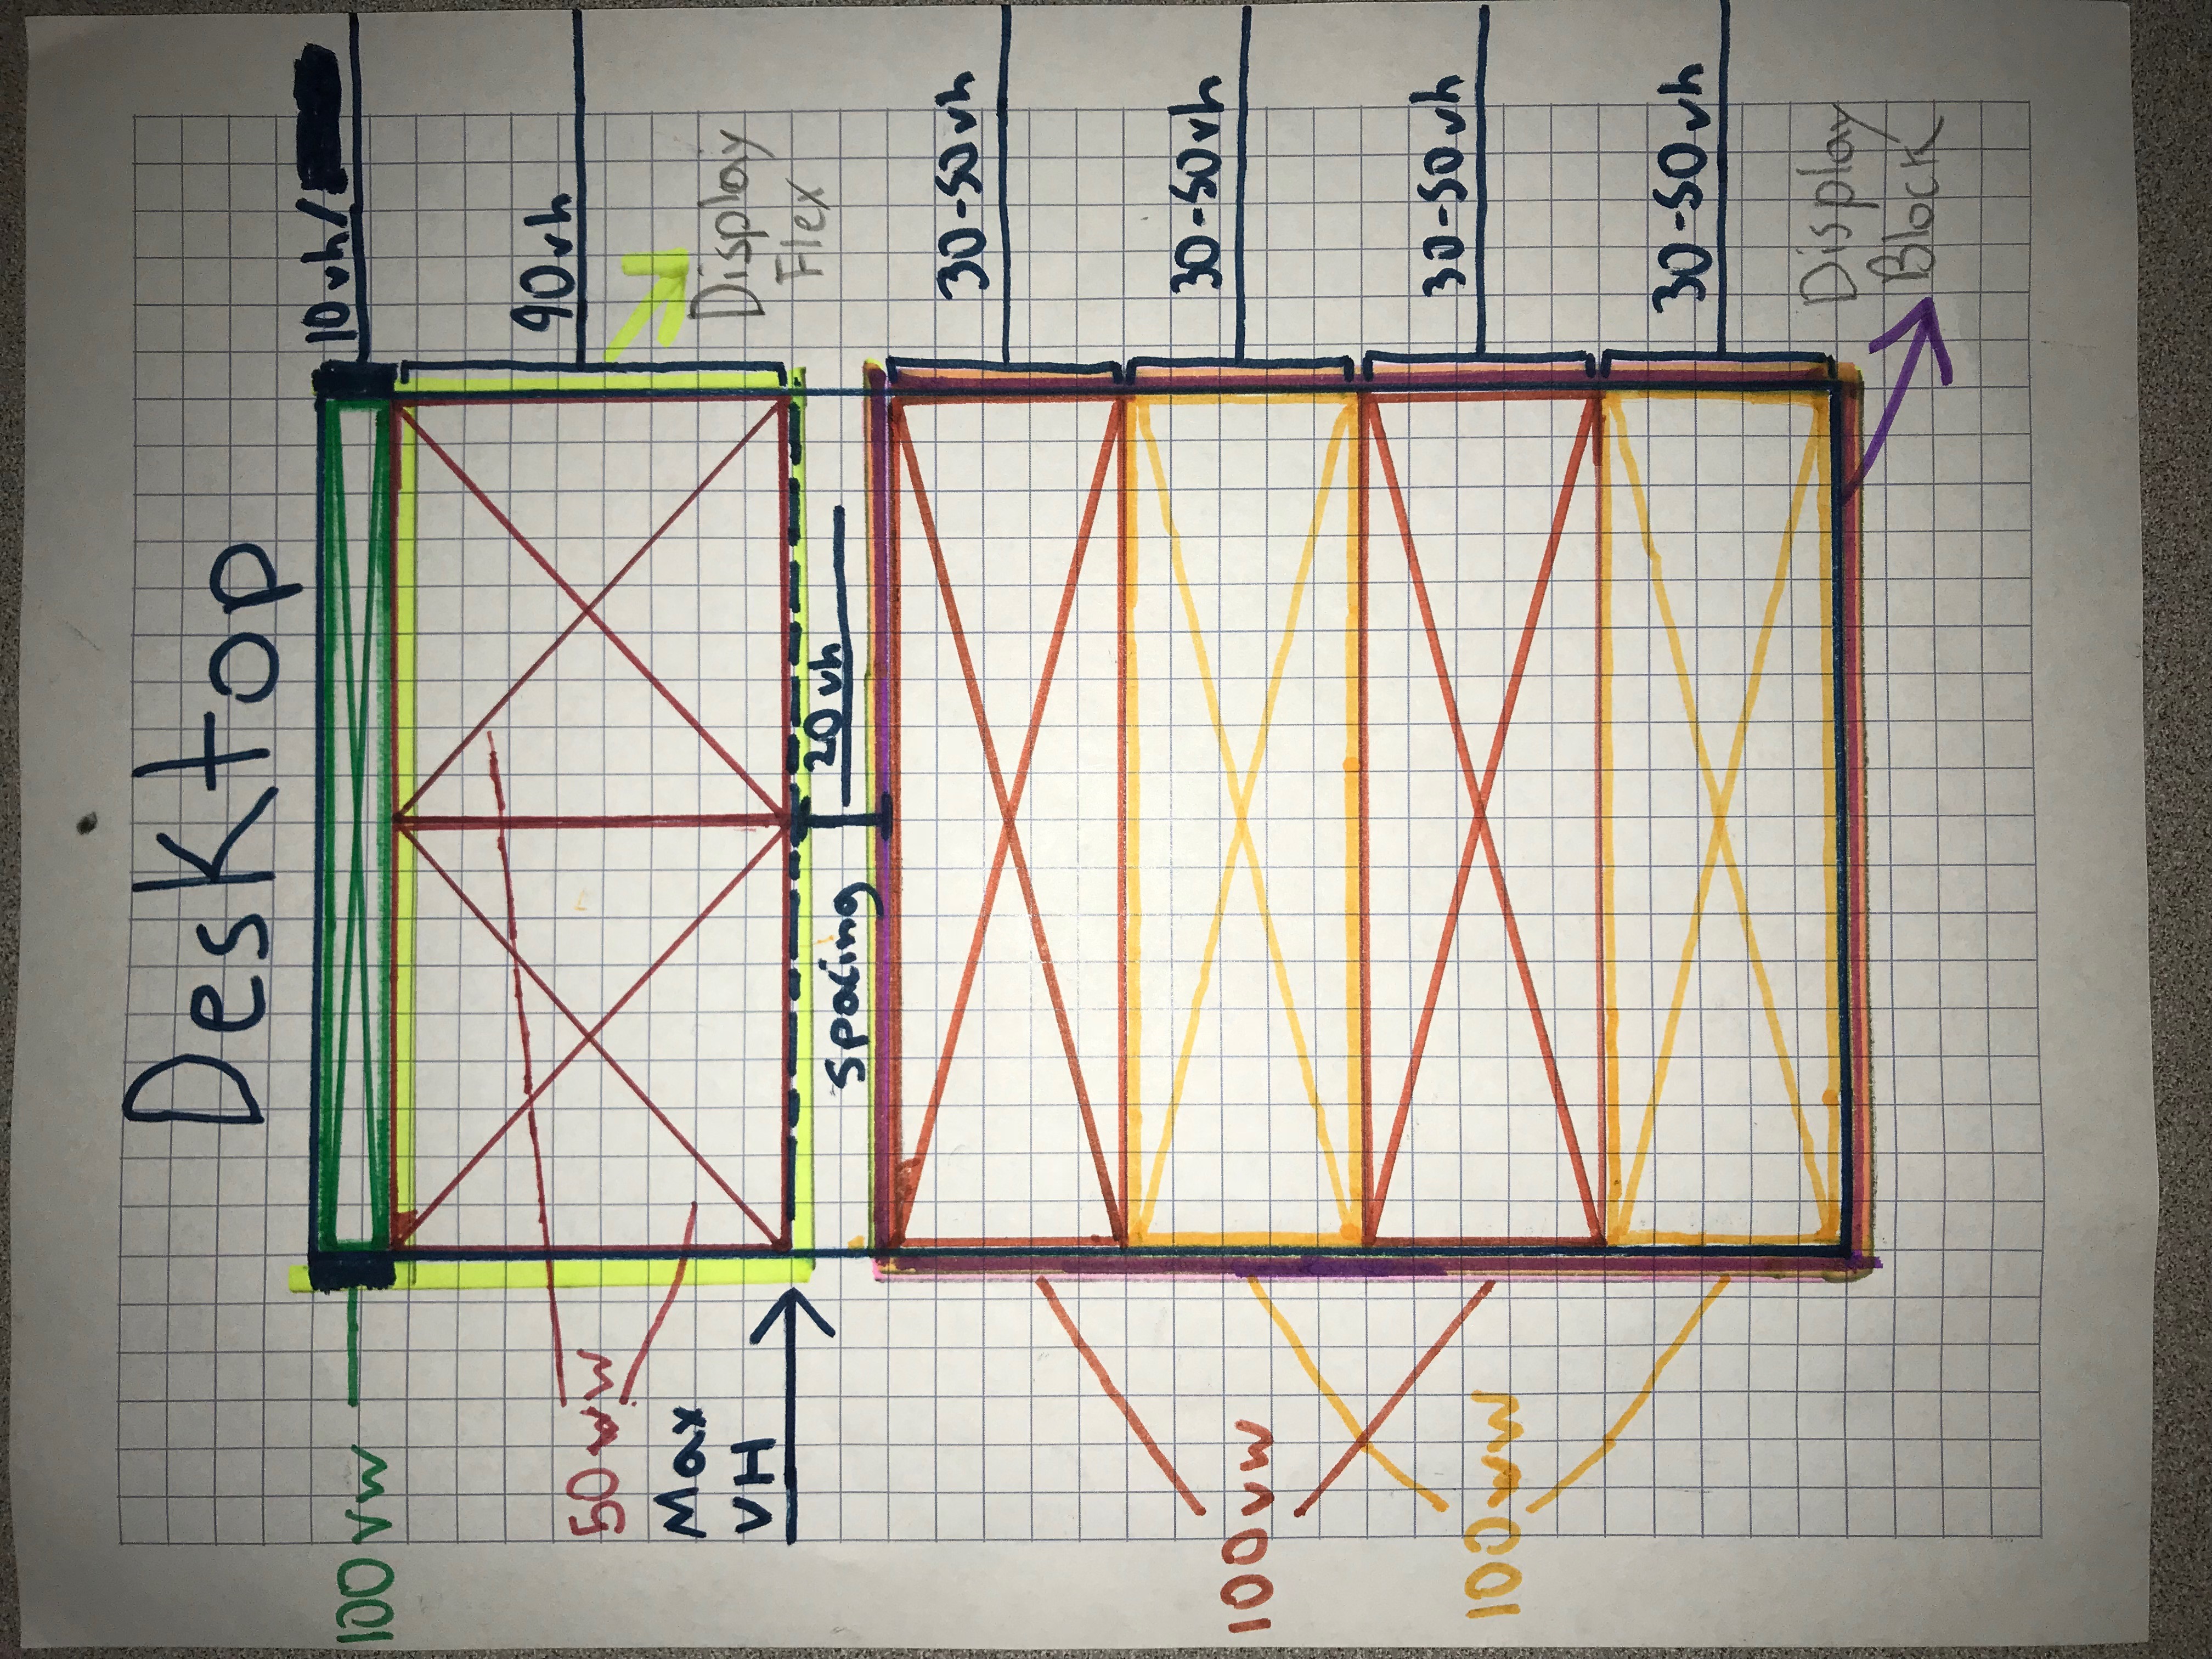 Desktop
100 vw
10 vh/
50 vw
90 vh
Max
VH
Display
Flex
spacing
20 vh
30-50 vh
100 vw
30-50 vh
100 vw
30-50 vh
30-50 vh
Display
Block